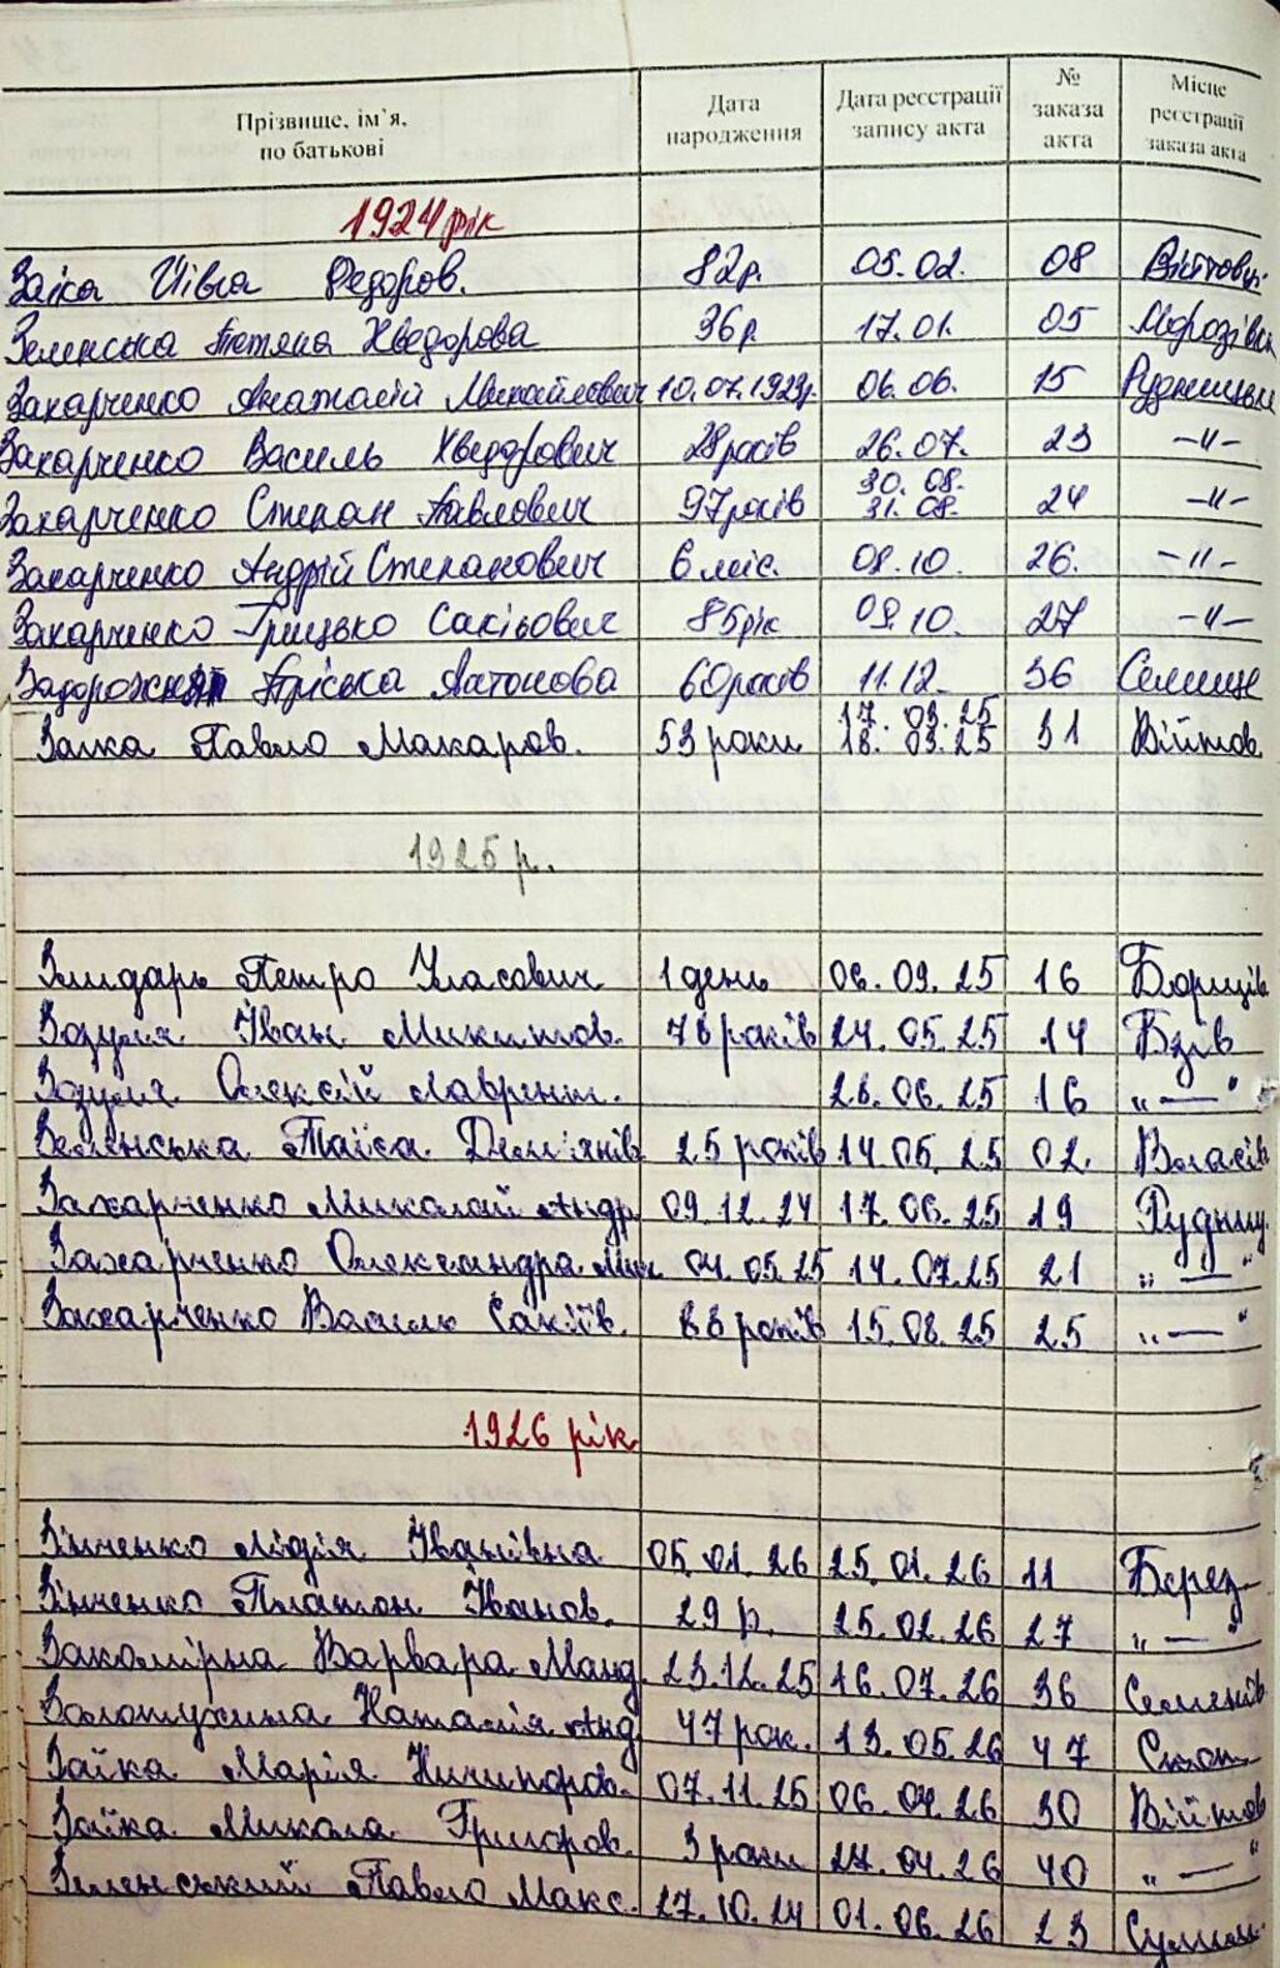 Прізвище, ім'я, по батькові Дата народження Дата реєстрації запису акта № заказа акта Місце реєстрації заказа акта
1924 рік
Заіка Федоров. 82р. 05.02. 08
Зеленська Тетяна Хведорова 36р. 17.01. 05 Морозівка
Захарченко Анатолій Михайлович 10.07.1923р. 06.06. 15
Захарченко Василь Хведорович 28років 26.07. 23 –"–
Захарченко Степан Павлович 97років 30.08. 31.08. 24 –"–
Захарченко Андрій Степанович 6 міс. 08.10. 26. –"–
Захарченко Грицько Сакійович 85рік 09.10. 27 –"–
Пріська Антонова 60років 11.12. 36 Селище
Заїка Павло Макаров. 53 роки 17.03.25 18.03.25 31 Війтов.
1925 р.
Петро Уласович 1 день 06.09.25 16 Борщів
Зозуля Іван Микитов. 76 років 24.05.25 14 Взів
Зозуля Олексій Лаврент. 26.06.25 16 „—"
Зеленська Таїса Дем'янів 25 років 14.05.25 02. Власів
Захарченко Миколай Андр. 09.12.24 17.06.25 19 Рудниц.
Захарченко Олександра Мих. 04.05.25 14.07.25 21 „—"
Захарченко Василь Сакіїв. 88 років 15.08.25 25 „—"
1926 рік
Зінченко Лідія Іванівна 05.01.26 25.01.26 11 Берез.
Зінченко Платон Іванов. 29 р. 25.02.26 27 „—"
Закомірна Варвара 23.12.25 16.07.26 36 Семенів
Золотухина Наталія Анд. 47 рок. 13.05.26 47
Заїка Марія Ничипоров. 07.11.25 06.04.26 30 Війтов
Заїка Микола Григоров. 3 роки 27.04.26 40 „—"
Зеленський Павло Макс. 27.10.24 01.06.26 23